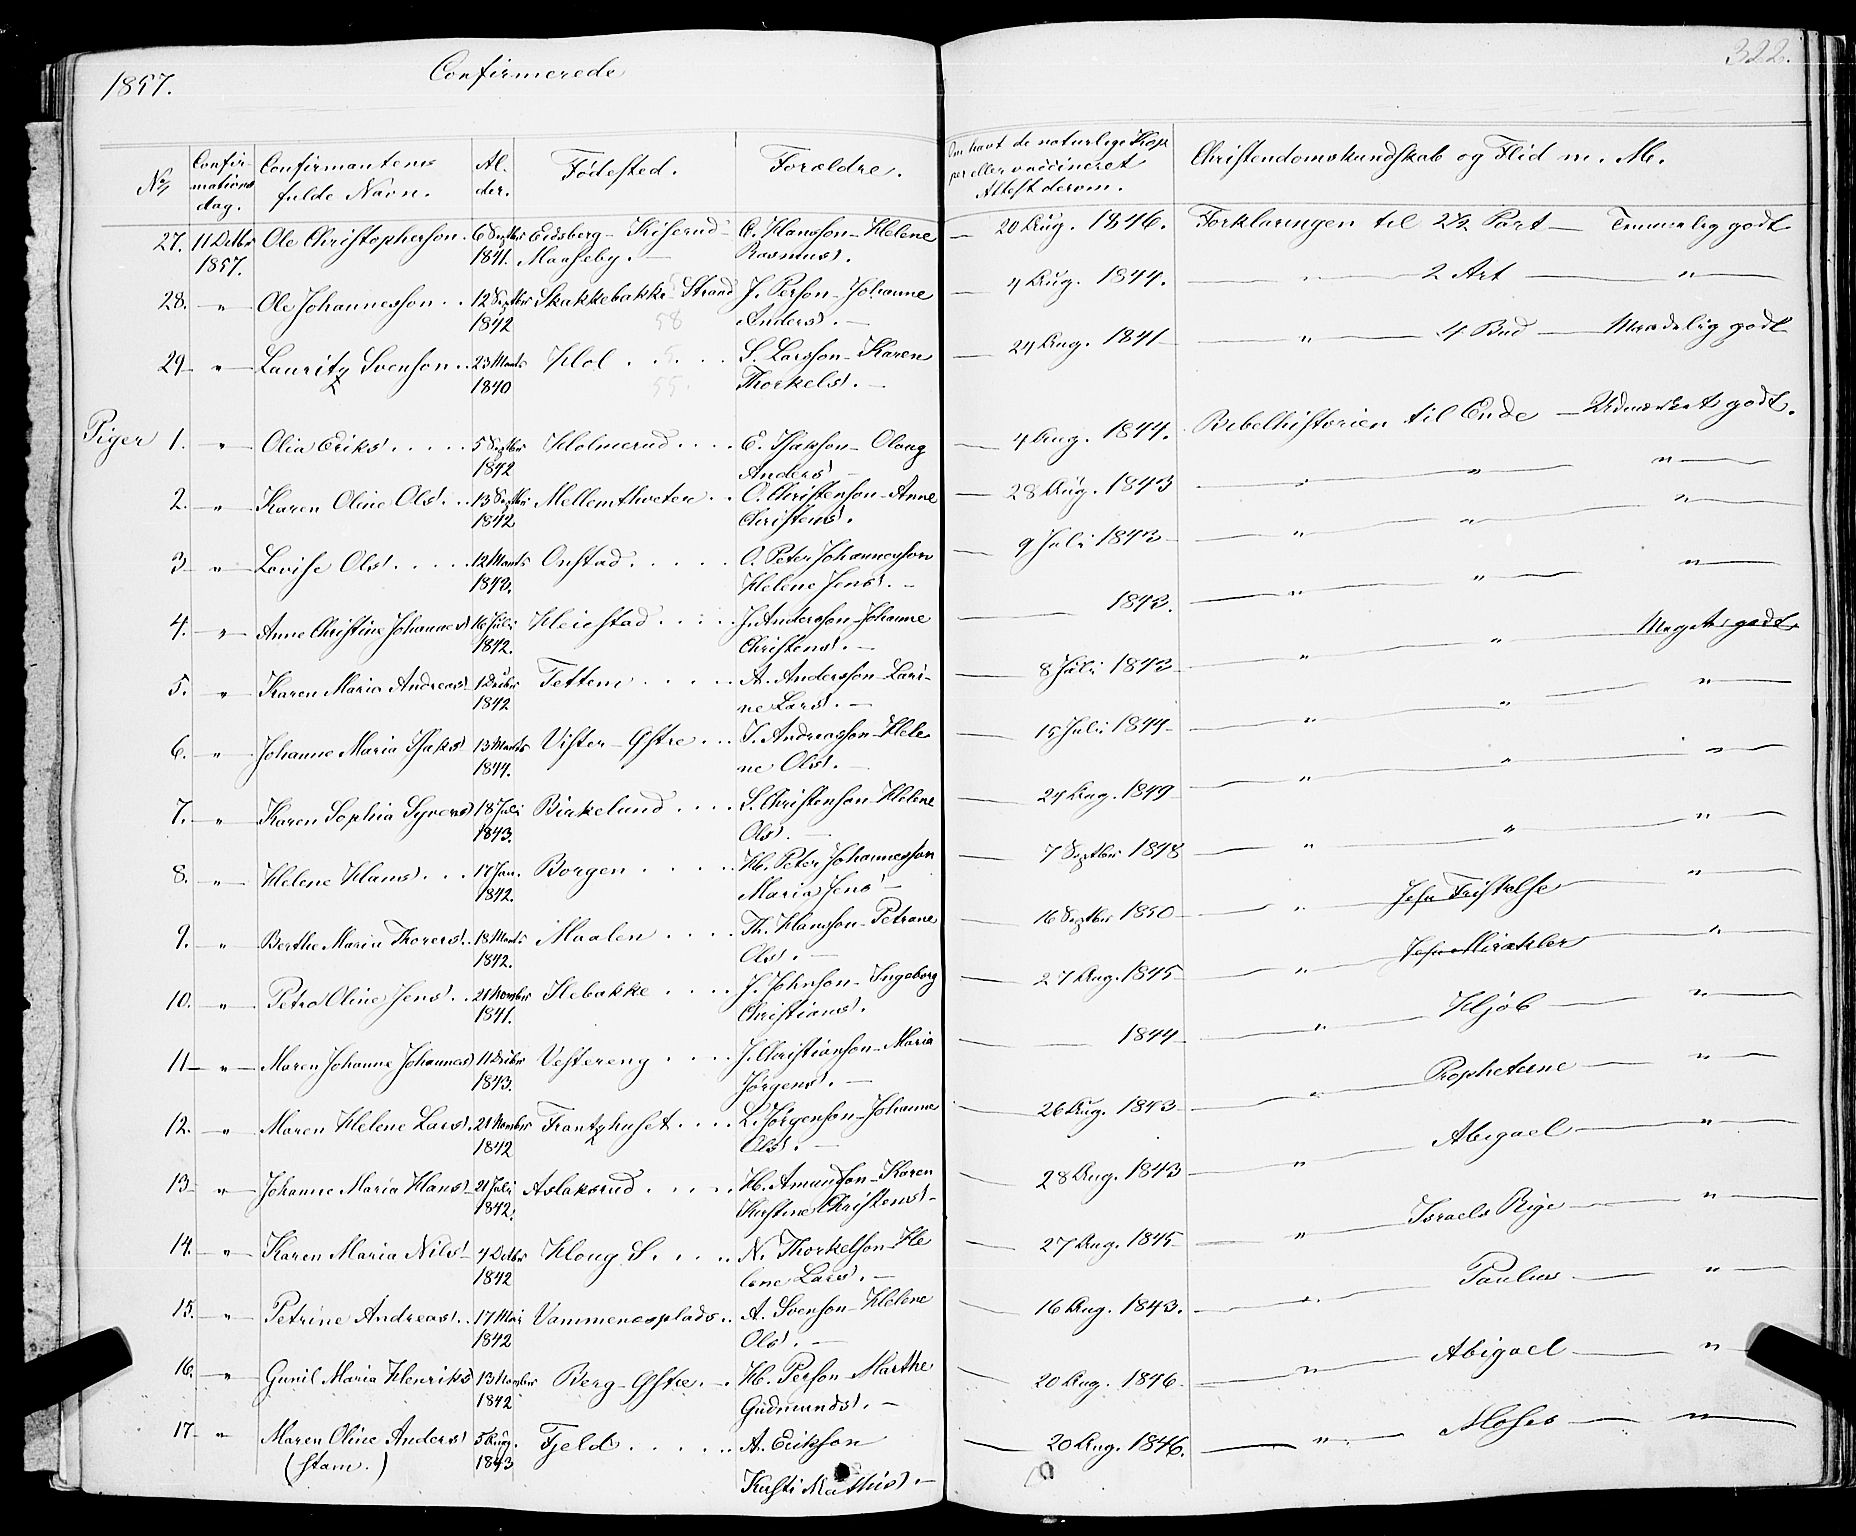 1857. Confirmerede 322.
No. Confirmationsdag. Confirmantens fulde Navn. Alder. Fødested. Forældre. Om havt de naturlige Kopper eller vaccineret Attest derom. Christendomskundskab og Flid m. M.
27. 11 Octbr 1857. Ole Christopherson. 6 Septbr 1841. Eidsberg - Kiserud - Monseby. C. Hansson - Helene Rasmusd. — 20 Aug. 1846. Forklaringen til 2½ Part — Temmelig godt
28. " Ole Johannesson . . 12 Septbr 1842 Skakkebakke Strand 58 J. Person - Johanne Andersd. — 4 Aug. 1844. — " — 2 Art — "
29 " Lauritz Svenson . . 23 Marts 1840 Hol . . . . 55. S. Larsson - Karen Thorkelsd. — 24 Aug. 1841 — " — 4 Bud — Maadelig godt
Piger 1. " Olia Eriksd. . . . . . 5 Septbr 1842 Holmerud . . . . E. Isakson - Oloug Andersd — 4 Aug. 1844. Bibelhistorien til Ende — Udmærket godt.
2. " Karen Oline Olsd. . . 13 Septbr 1842 Mellemthveten . . O. Christenson - Anne Christensd. — 28 Aug. 1843 — " — " — "
3 " Lovise Olsd. . . . . . 12 Marts 1842. Onstad . . . . . O. Peter Johannesson Helene Jensd. — 9 Juli 1843 — " — " — "
4. " Anne Christine Johannesd 16 Juli 1842. Heiestad . . . . J. Andersson - Johanne Christensd. — 1843. — " — " — "
5. " Karen Maria Andreasd 1 Decbr 1842 Tettem . . . . . A. Andersson - Larine Larsd. — 8 Juli 1843 — " — " — Meget godt.
6. " Johanne Maria Isaksd 13 Marts 1844. Vister - Østre . . . I. Andreasson - Helene Olsd. — 15 Juli 1844 — " — " — "
7. " Karen Sophia Syversd 18 Juli 1843. Birkelund . . . . S. Christenson - Helene Olsd. — 24 Aug. 1849 — " — " — "
8. " Helene Hansd . . . 17 Jan. 1842. Borgen . . . . . H. Peter Johannesson Maria Jensd — 7 Septbr 1848 — " — " — "
9. " Berthe Maria Thorersd. 18 Marts 1842. Maalen . . . . Th. Hansson - Petrane Olsd. — 16 Septbr 1850 — " Jesu Fristelse — "
10. " Petra Oline Jensd . . 21 Novmbr 1841. Slebakke . . . . J. Johnson - Ingeborg Christiansd. — 27 Aug. 1845 — " Jesu Mirakler — "
11 — " — Maren Johanne Johannesd 11 Decbr 1843. Vestereng . . . . J. Christianson - Maria Jørgensd. — 1844 — " — Hjób — "
12. " Maren Helene Larsd. 21 Novmbr 1842 Frantzhuset . . . . L. Jørgenson - Johanne Olsd. — 26 Aug. 1843 — " — Propheterne — "
13 " Johanne Maria Hansd 21 Juli 1842. Aslaksrud . . . . . H. Amundson - Karen Kirstine Christensd — 28 Aug. 1843 — " — Abigael — "
14. " Karen Maria Nilsd 4 Octbr 1842 Houg S. . . . . . N. Thorkelson - Helene Larsd. — 27 Aug. 1845 — " — Israels Rige — "
15. " Petrine Andreasd . . 17 Mai 1842 Vammenesplads . . A. Svenson - Helene Olsd. — 16 Aug. 1843. — " — Paulus — "
16. " Gunil Maria Henriksd 13 Novmbr 1842 Berg - Østre . . H. Person - Marthe Gudmundsd. — 20 Aug. 1846 — " — Abigael — "
17 " Maren Oline Andersd (stam.) 5 Aug. 1843 Fjeld . . . . . . A. Erikson Kirsti Mathisd. — 20 Aug. 1846. — " — Moses — "